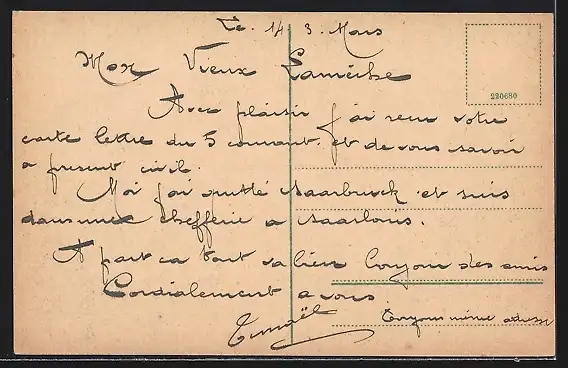 Le 14 3. Mars
220680
Mon Vieux
Avec plaisir j'ai recu votre
carte lettre du 5 courant. et de vous savoir
a present civil.
Moi j'ai quitté Saarburck et suis
dans une chefferie a Saarlouis.
A part ca tout va bien Bonjour des amis
Cordialement a vous.
Toujours même adresse